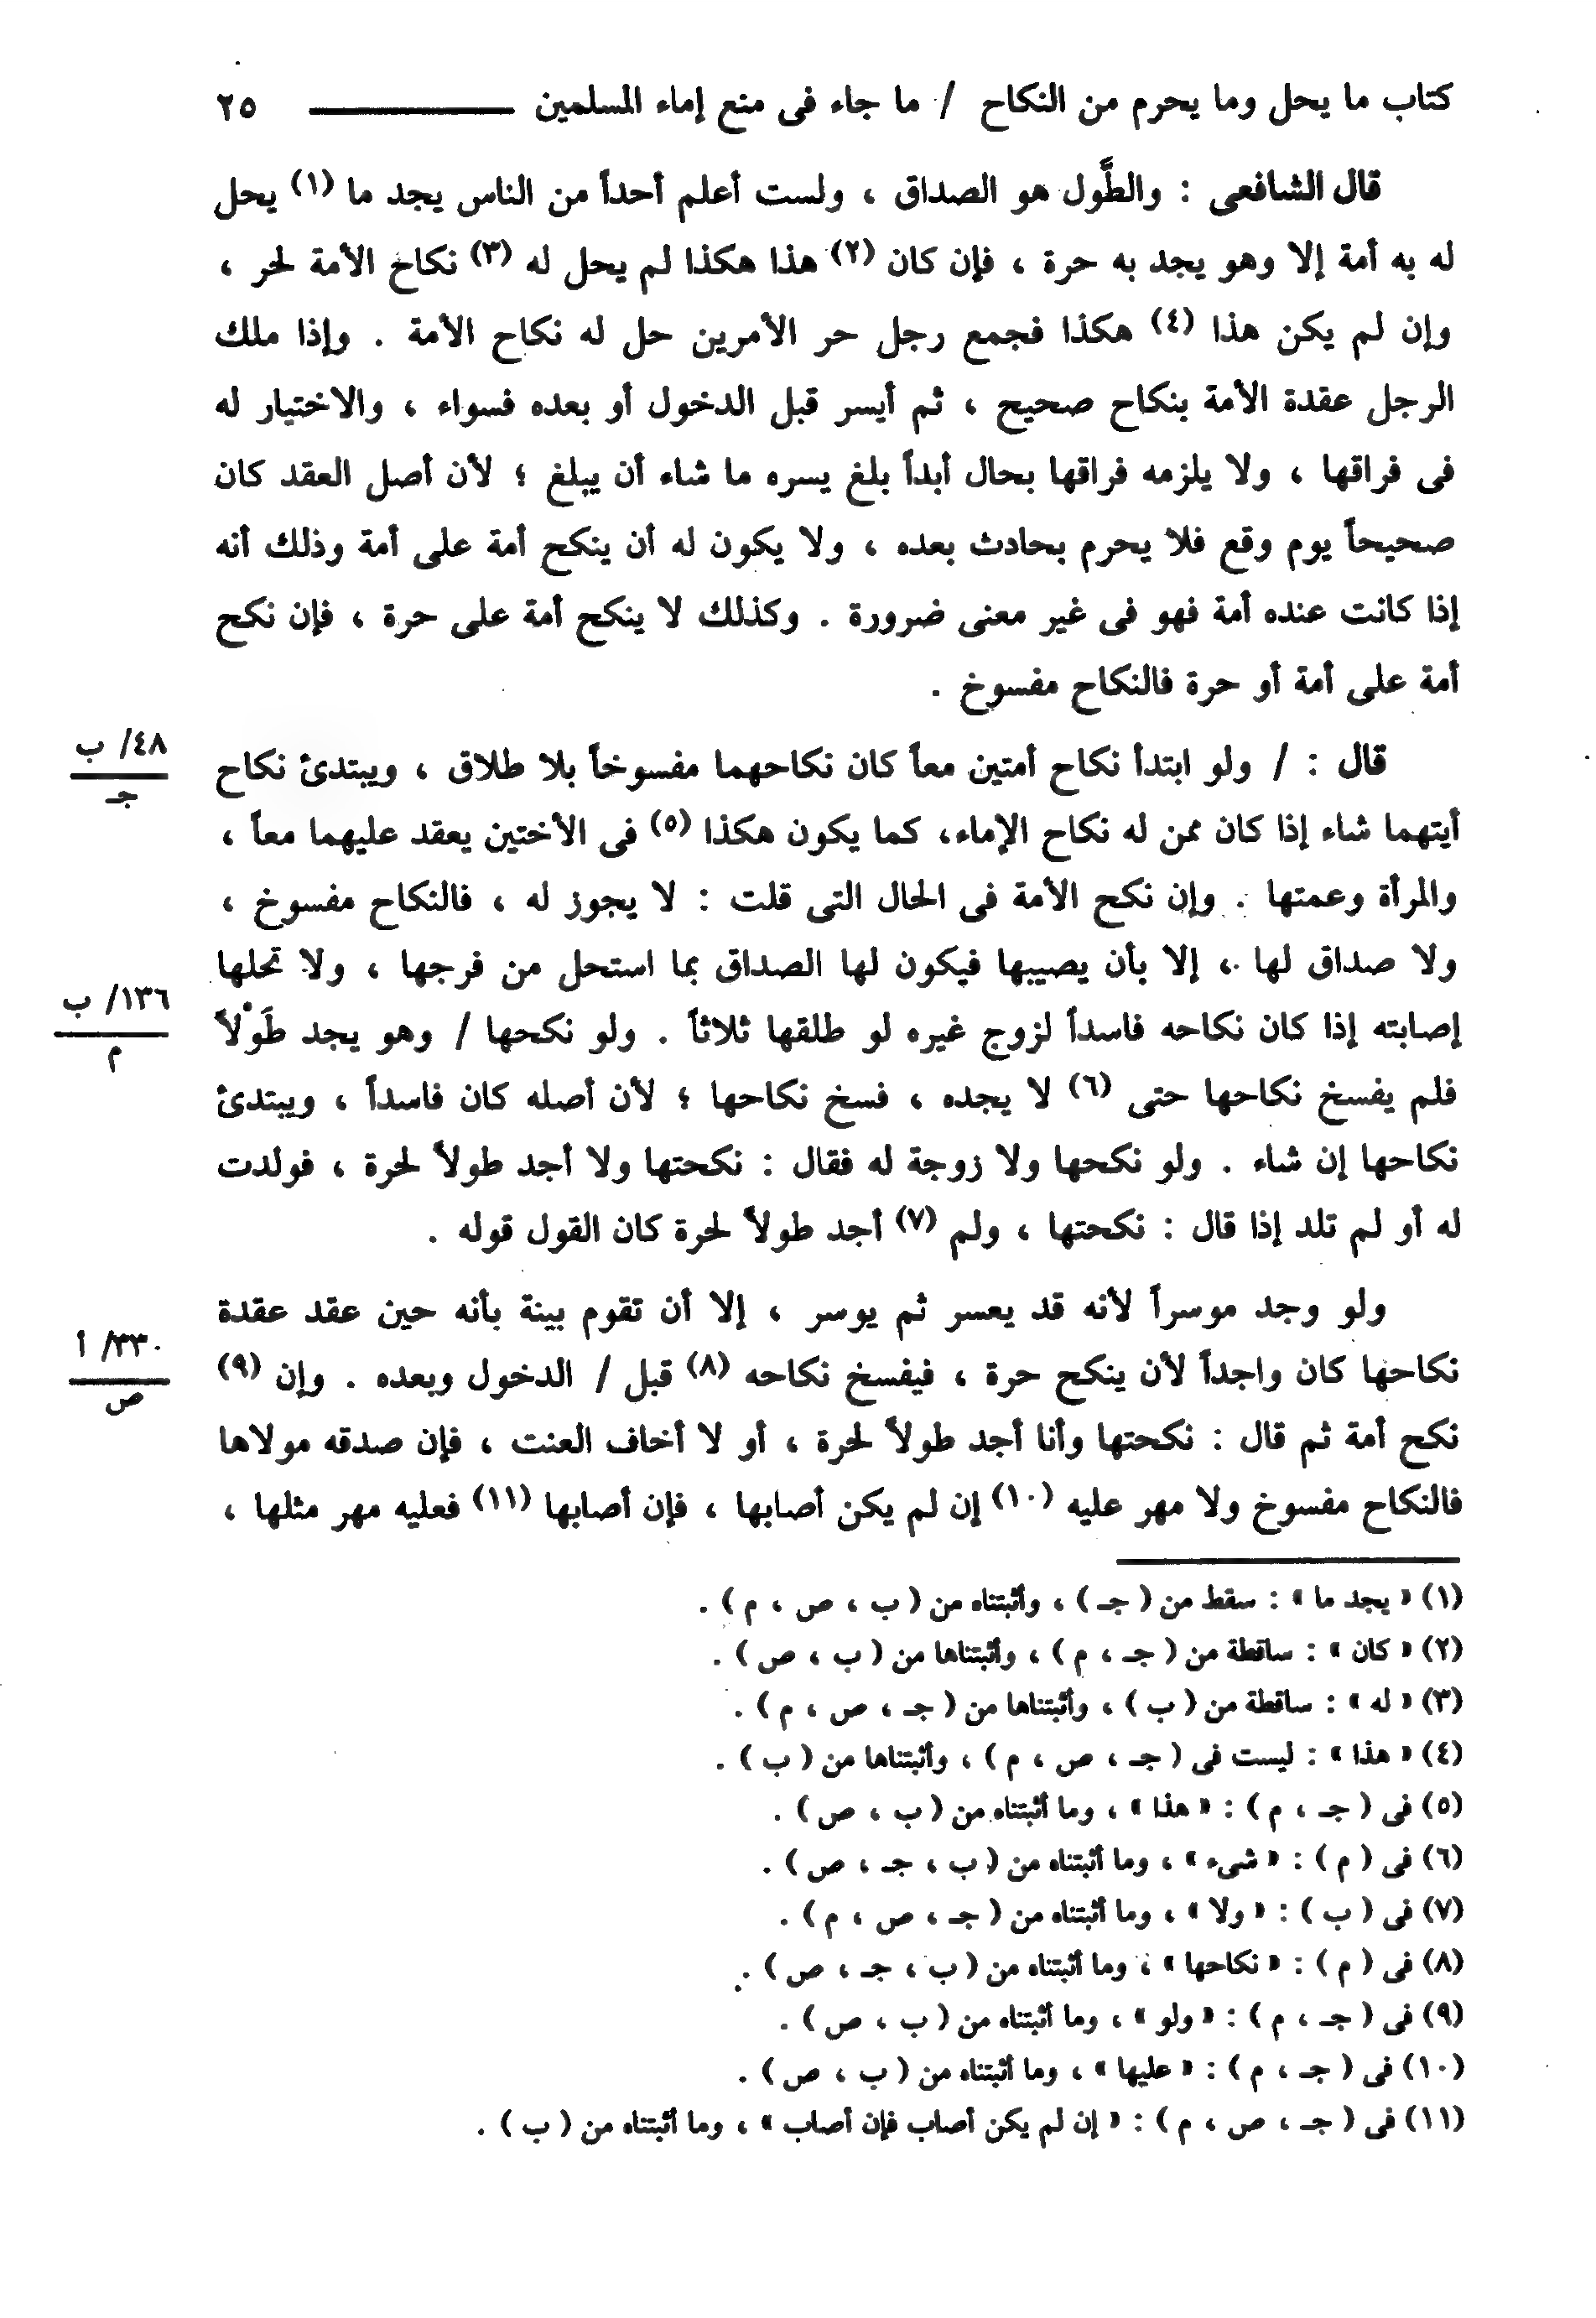 كتاب ما يحل وما يحرم من النكاح / ما جاء فى منع إماء المسلمين ٢٥
قال الشافعى : والطَّول هو الصداق ، ولست أعلم أحداً من الناس يجد ما (١) يحل
له به أمة إلا وهو يجد به حرة ، فإن كان (٢) هذا هكذا لم يحل له (٣) نكاح الأمة لحر ،
وإن لم يكن هذا (٤) هكذا فجمع رجل حر الأمرين حل له نكاح الأمة . وإذا ملك
الرجل عقدة الأمة بنكاح صحيح ، ثم أيسر قبل الدخول أو بعده فسواء ، والاختيار له
فى فراقها ، ولا يلزمه فراقها بحال أبداً بلغ يسره ما شاء أن يبلغ ؛ لأن أصل العقد كان
صحيحاً يوم وقع فلا يحرم بحادث بعده ، ولا يكون له أن ينكح أمة على أمة وذلك أنه
إذا كانت عنده أمة فهو فى غير معنى ضرورة . وكذلك لا ينكح أمة على حرة ، فإن نكح
أمة على أمة أو حرة فالنكاح مفسوخ .
قال : / ولو ابتدأ نكاح أمتين معاً كان نكاحهما مفسوخاً بلا طلاق ، ويبتدئ نكاح
٤٨/ ب
جـ
أيتهما شاء إذا كان ممن له نكاح الإماء، كما يكون هكذا (٥) فى الأختين يعقد عليهما معاً ،
والمرأة وعمتها . وإن نكح الأمة فى الحال التى قلت : لا يجوز له ، فالنكاح مفسوخ ،
ولا صداق لها ، إلا بأن يصيبها فيكون لها الصداق بما استحل من فرجها ، ولا تحلها
إصابته إذا كان نكاحه فاسداً لزوج غيره لو طلقها ثلاثاً . ولو نكحها / وهو يجد طَوْلاً
١٣٦/ ب
م
فلم يفسخ نكاحها حتى (٦) لا يجده ، فسخ نكاحها ؛ لأن أصله كان فاسداً ، ويبتدئ
نكاحها إن شاء . ولو نكحها ولا زوجة له فقال : نكحتها ولا أجد طولاً لحرة ، فولدت
له أو لم تلد إذا قال : نكحتها ، ولم (٧) أجد طولاً لحرة كان القول قوله .
ولو وجد موسراً لأنه قد يعسر ثم يوسر ، إلا أن تقوم بينة بأنه حين عقد عقدة
نكاحها كان واجداً لأن ينكح حرة ، فيفسخ نكاحه (٨) قبل / الدخول وبعده . وإن (٩)
٣٣٠/ أ
ص
نكح أمة ثم قال : نكحتها وأنا أجد طولاً لحرة ، أو لا أخاف العنت ، فإن صدقه مولاها
فالنكاح مفسوخ ولا مهر عليه (١٠) إن لم يكن أصابها ، فإن أصابها (١١) فعليه مهر مثلها ،
(١) « يجد ما » : سقط من ( جـ ) ، وأثبتناه من ( ب ، ص ، م ) .
(٢) « كان » : ساقطة من ( جـ ، م ) ، وأثبتناها من ( ب ، ص ) .
(٣) « له » : ساقطة من ( ب ) ، وأثبتناها من ( جـ ، ص ، م ) .
(٤) « هذا » : ليست فى ( جـ ، ص ، م ) ، وأثبتناها من ( ب ) .
(٥) فى ( جـ ، م ) : « هذا » ، وما أثبتناه من ( ب ، ص ) .
(٦) فى ( م ) : « شىء » ، وما أثبتناه من ( ب ، جـ ، ص ) .
(٧) فى ( ب ) : « ولا » ، وما أثبتناه من ( جـ ، ص ، م ) .
(٨) فى ( م ) : « نكاحها » ، وما أثبتناه من ( ب ، جـ ، ص ) .
(٩) فى ( جـ ، م ) : « ولو » ، وما أثبتناه من ( ب ، ص ) .
(١٠) فى ( جـ ، م ) : « عليها » ، وما أثبتناه من ( ب ، ص ) .
(١١) فى ( جـ ، ص ، م ) : « إن لم يكن أصاب فإن أصاب » ، وما أثبتناه من ( ب ) .